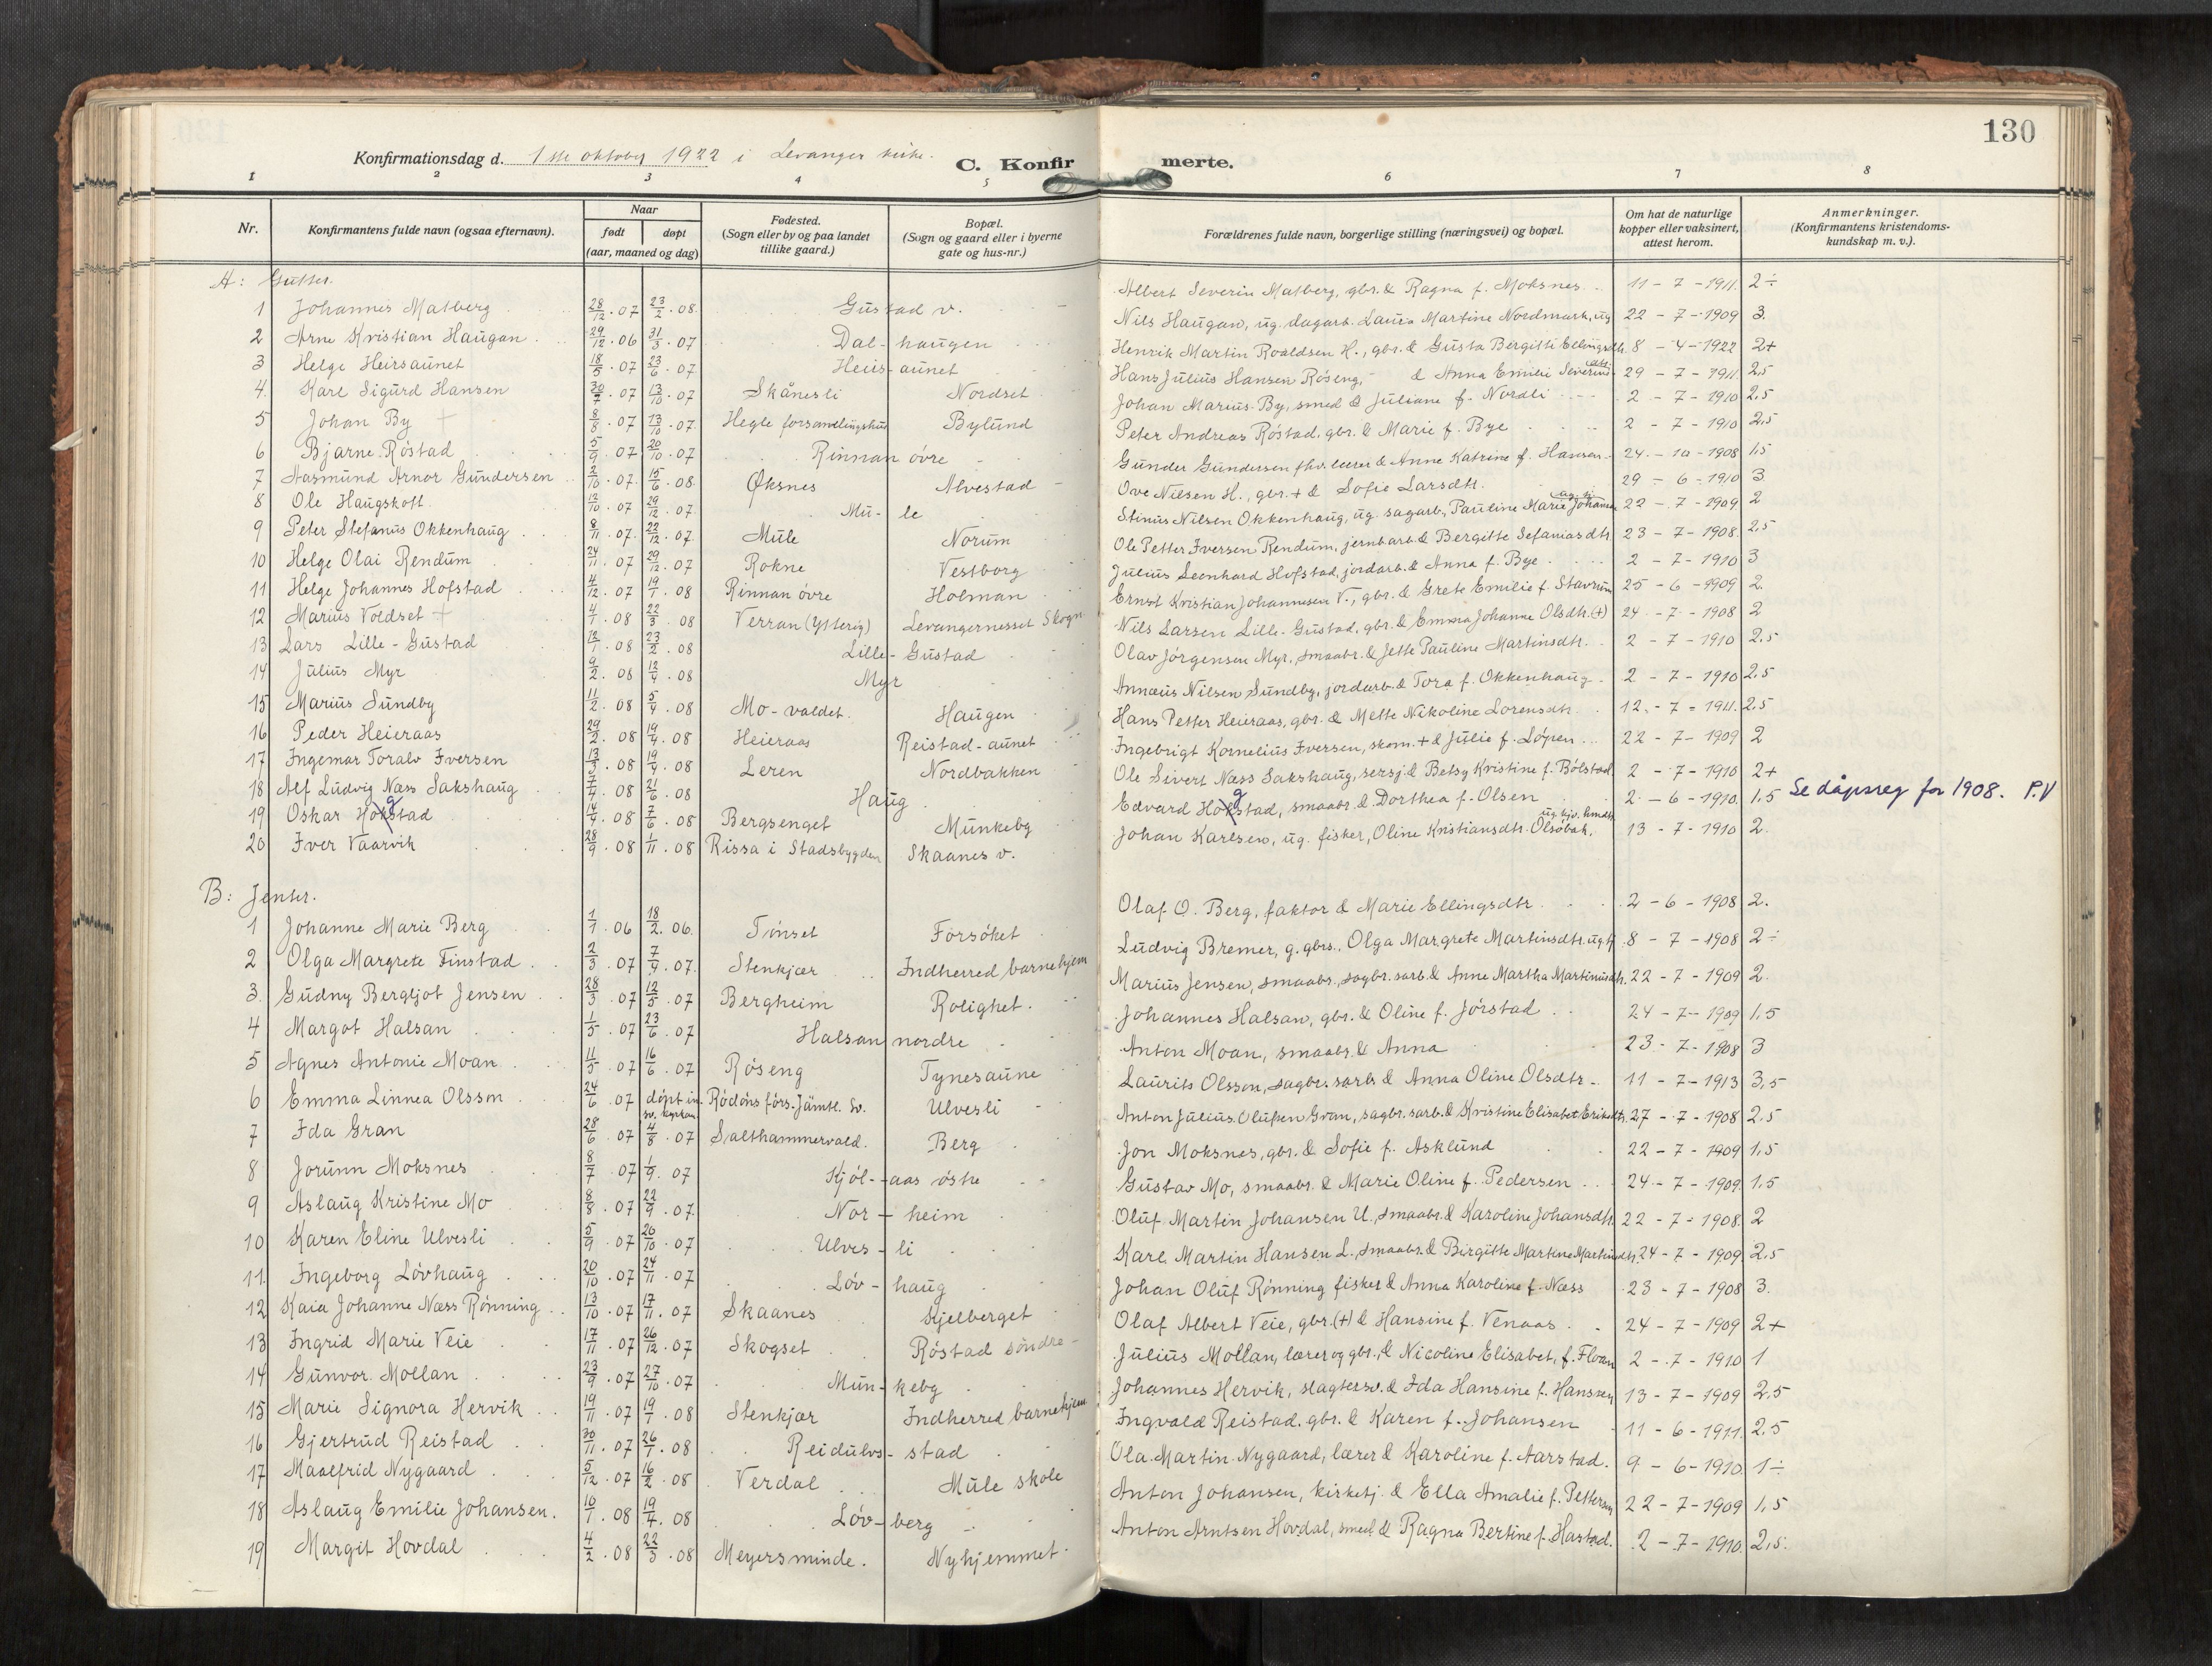 130
Konfirmationsdag d. 1ste oktober 1922 i Levanger kirke. C. Konfirmerte.
1 2 3 4 5 6 7 8
Nr. Konfirmantens fulde navn (ogsaa efternavn). Naar født døpt (aar, maaned og dag) Fødested. (Sogn eller by og paa landet tillike gaard.) Bopæl. (Sogn og gaard eller i byerne gate og hus-nr.) Forældrenes fulde navn, borgerlige stilling (næringsvei) og bopæl. Om hat de naturlige kopper eller vaksinert, attest herom. Anmerkninger. (Konfirmantens kristendomskundskap m. v.).
A: Gutter.
1 Johannes Matberg 28/12.07 23/2.08 Gustad v. Albert Severin Matberg, gbr. & Ragna f. Moksnes 11-7-1911. 2÷
2 Arne Kristian Haugan 29/12.06 31/3.07 Dal-haugen Nils Haugan, ug. dagarb. Laura Martine Nordmark, ug 22-7-1909 3.
3 Helge Heirsaunet 18/5.07 23/6.07 Heirs-aunet Henrik Martin Roaldsen H., gbr. & Gusta Bergitti Ellingsdtr. 8-4-1922 2+
4. Karl Sigurd Hansen 30/7.07 13/10.07 Skånesli Nordset Hans Julius Hansen Røseng, & Anna Emilie Severinsdtr 29-7-1911. 2,5
5 Johan By + 8/8.07 13/10.07. Hegle forsamlingshus Bylund Johan Marius By, smed & Juliane f. Nordli 2-7-1910 2,5
6 Bjarne Røstad 5/9.07 20/10.07 Rinnan øvre Peter Andreas Røstad, gbr. & Marie f. Bye 2-7-1910 2,5
7 Aasmund Arnor Gundersen 2/10.07. 15/6.08 Øksnes Alvestad Gunder Gundersen fhv. lærer & Anne Katrine f. Hansen 24-10-1908 1,5
8 Ole Haugskott 12/10.07 29/12.07. Mu-le Ove Nilsen H., gbr. + & Sofie Larsdtr. 29-6-1910 3
9 Peter Stefanus Okkenhaug 8/11.07. 22/12.07. Mule Norum Stinus Nilsen Okkenhaug, ug. sagarb., Pauline Marie Johansen 22-7-1909 2
10 Helge Olai Rendum 24/11.07 29/12.07 Rokne Vestborg Ole Petter Iversen Rendum, jernbarb. & Bergitte Sefaniasdtr 23-7-1908. 2,5
11 Helge Johannes Hofstad 4/12.07 19/1.08 Rinnan øvre Holman Julius Leonhard Hofstad, jordarb. & Anna f. Bye 2-7-1910 3
12 Marius Voldset + 4/1.08 22/3.08 Verran (Ytterøg) Levangernesset Skogn Ernst Kristian Johannesen V., gbr. & Grete Emilie f. Stavrum 25-6-1909 2.
13 Lars Lille-Gustad 12/1.08 23/2.08 Lille-Gustad Nils Larsen Lille-Gustad, gbr. & Emma Johanne Olsdtr. (+) 24-7-1908 2
14 Julius Myr 9/2.08 12/4.08 Myr Olav Jørgensen Myr, smaabr. & Jette Pauline Martinsdtr. 2-7-1910 2,5
15 Marius Sundby 11/2.08 5/4.08 Mo-valdet. Haugen Annæus Nilsen Sundby, jordarb. & Tora f. Okkenhaug 2-7-1910 2,5
16 Peder Heieraas 29/2.08 19/4.08 Heieraas Reistad-aunet Hans Petter Heieraas, gbr. & Mette Nikoline Lorensdtr. 12-7-1911. 2,5
17 Ingemar Toralv Iversen 13/3.08 19/4.08 Leren Nordbakken Ingebrigt Kornelius Iversen, skom. + & Julie f. Løpen 22-7-1909 2
18 Alf Ludvig Næss Sakshaug 7/4.08 21/6.08 Haug Ole Sivert Næss Sakshaug, sersj. & Betsy Kristine f. Bølstad 2-7-1910 2+
19 Oskar Hokstad g 14/4.08 7/6.08 Bergsenget Munkeby Edvard Hokstad, g smaabr. & Dorthea f. Olsen 2-6-1910. 1,5 Se dåpsreg for 1908. P.V
20 Iver Vaarvik 28/9.08 1/11.08 Rissa i Stadsbygden Skaanes v. Johan Karlsen, ug. fisker, Oline Kristiansdtr. Olsøbak, 13-7-1910 2.
B: Jenter.
1 Johanne Marie Berg 1/1.06 18/2.06. Tønset Forsøket Olaf O. Berg, faktor & Marie Ellingsdtr 2-6-1908 2.
2 Olga Margrete Finstad 2/3.07 7/4.07. Stenkjær Indherred barnehjem Ludvig Bremer, g. gbrs., Olga Margrete Martinsdtr. ug. tj 8-7-1908 2÷
3. Gudny Bergljot Jensen 28/3.07 12/5.07 Bergheim Rolighet. Marius Jensen, smaabr., sagbr. sarb. & Anne Martha Martinusdtr. 22-7-1909 2.
4 Margot Halsan 1/5.07 23/6.07 Halsan nordre Johannes Halsan, gbr. & Oline f. Jørstad 24-7-1909 1,5
5 Agnes Antonie Moan 11/5.07 16/6.07 Røseng Tynesaune Anton Moan, smaabr. & Anna 23-7-1908 3
6 Emma Linnea Olsson 24/6.07 döpt in sv. kyrkan Rödöns förs. Jämtl. Sv. Ulvesli Laurits Olsson, sagbr. sarb. & Anna Oline Olsdtr. 11-7-1913 3,5
7 Ida Gran 28/6.07 4/8.07 Salthammervald. Berg Anton Julius Olufsen Gran, sagbr. sarb. & Kristine Elisabet Eriksdtr. 27-7-1908 2.5
8 Jorunn Moksnes 8/7.07 1/9.07 Kjøl-aas østre Jon Moksnes, gbr. & Sofie f. Asklund 22-7-1909 1,5
9 Aslaug Kristine Mo 8/8.07 22/9.07. Nor-heim Gustav Mo, smaabr. & Marie Oline f. Pedersen 24-7-1909. 1,5
10 Karen Eline Ulvesli 5/9.07 20/10.07 Ulves-li Oluf Martin Johansen U., smaabr. & Karoline Johansdtr. 22-7-1908. 2
11. Ingeborg Løvhaug 20/10.07 24/11.07 Løv-haug Karl Martin Hansen L., smaabr. & Birgitte Martine Martinsdtr. 24-7-1909. 2,5
12 Kaia Johanne Næss Rønning 13/10.07 17/11.07 Skaanes Kjelberget Johan Oluf Rønning fisker & Anna Karoline f. Næss 23-7-1908 3.
13 Ingrid Marie Veie 17/11.07 26/12.07 Skogset Røstad søndre Olaf Albert Veie, gbr. (+) & Hansine f. Venaas 24-7-1909 2+
14 Gunvor Mollan 23/9.07 27/10.07 Mun-keby Julius Mollan, lærer og gbr., & Nicoline Elisabet, f. Floan 2-7-1910 1
15 Marie Signora Hervik 19/11.07 19/1.08 Stenkjær Indherred barnehjem Johannes Hervik, slagtersv. & Ida Hansine f. Hanssen 13-7-1909 2,5
16 Gjertrud Reistad 30/11.07 26/1.08 Reidulvs-stad Ingvald Reistad, gbr. & Karen f. Johansen 11-6-1911. 2,5
17 Maalfrid Nygaard 5/12.07 16/2.08 Verdal Mule skole Ola Martin Nygaard, lærer & Karoline f. Aarstad. 9-6-1910. 1÷
18 Aslaug Emilie Johansen. 10/1.08 19/4.08 Løv-berg Anton Johansen, kirketj. & Ella Amalie f. Pettersen 22-7-1909 1,5
19 Margit Hovdal 4/2.08 22/3.08 Meyersminde. Nyhjemmet Anton Arntsen Hovdal, smed & Ragna Bertine f. Hastad. 2-7-1910. 2,5